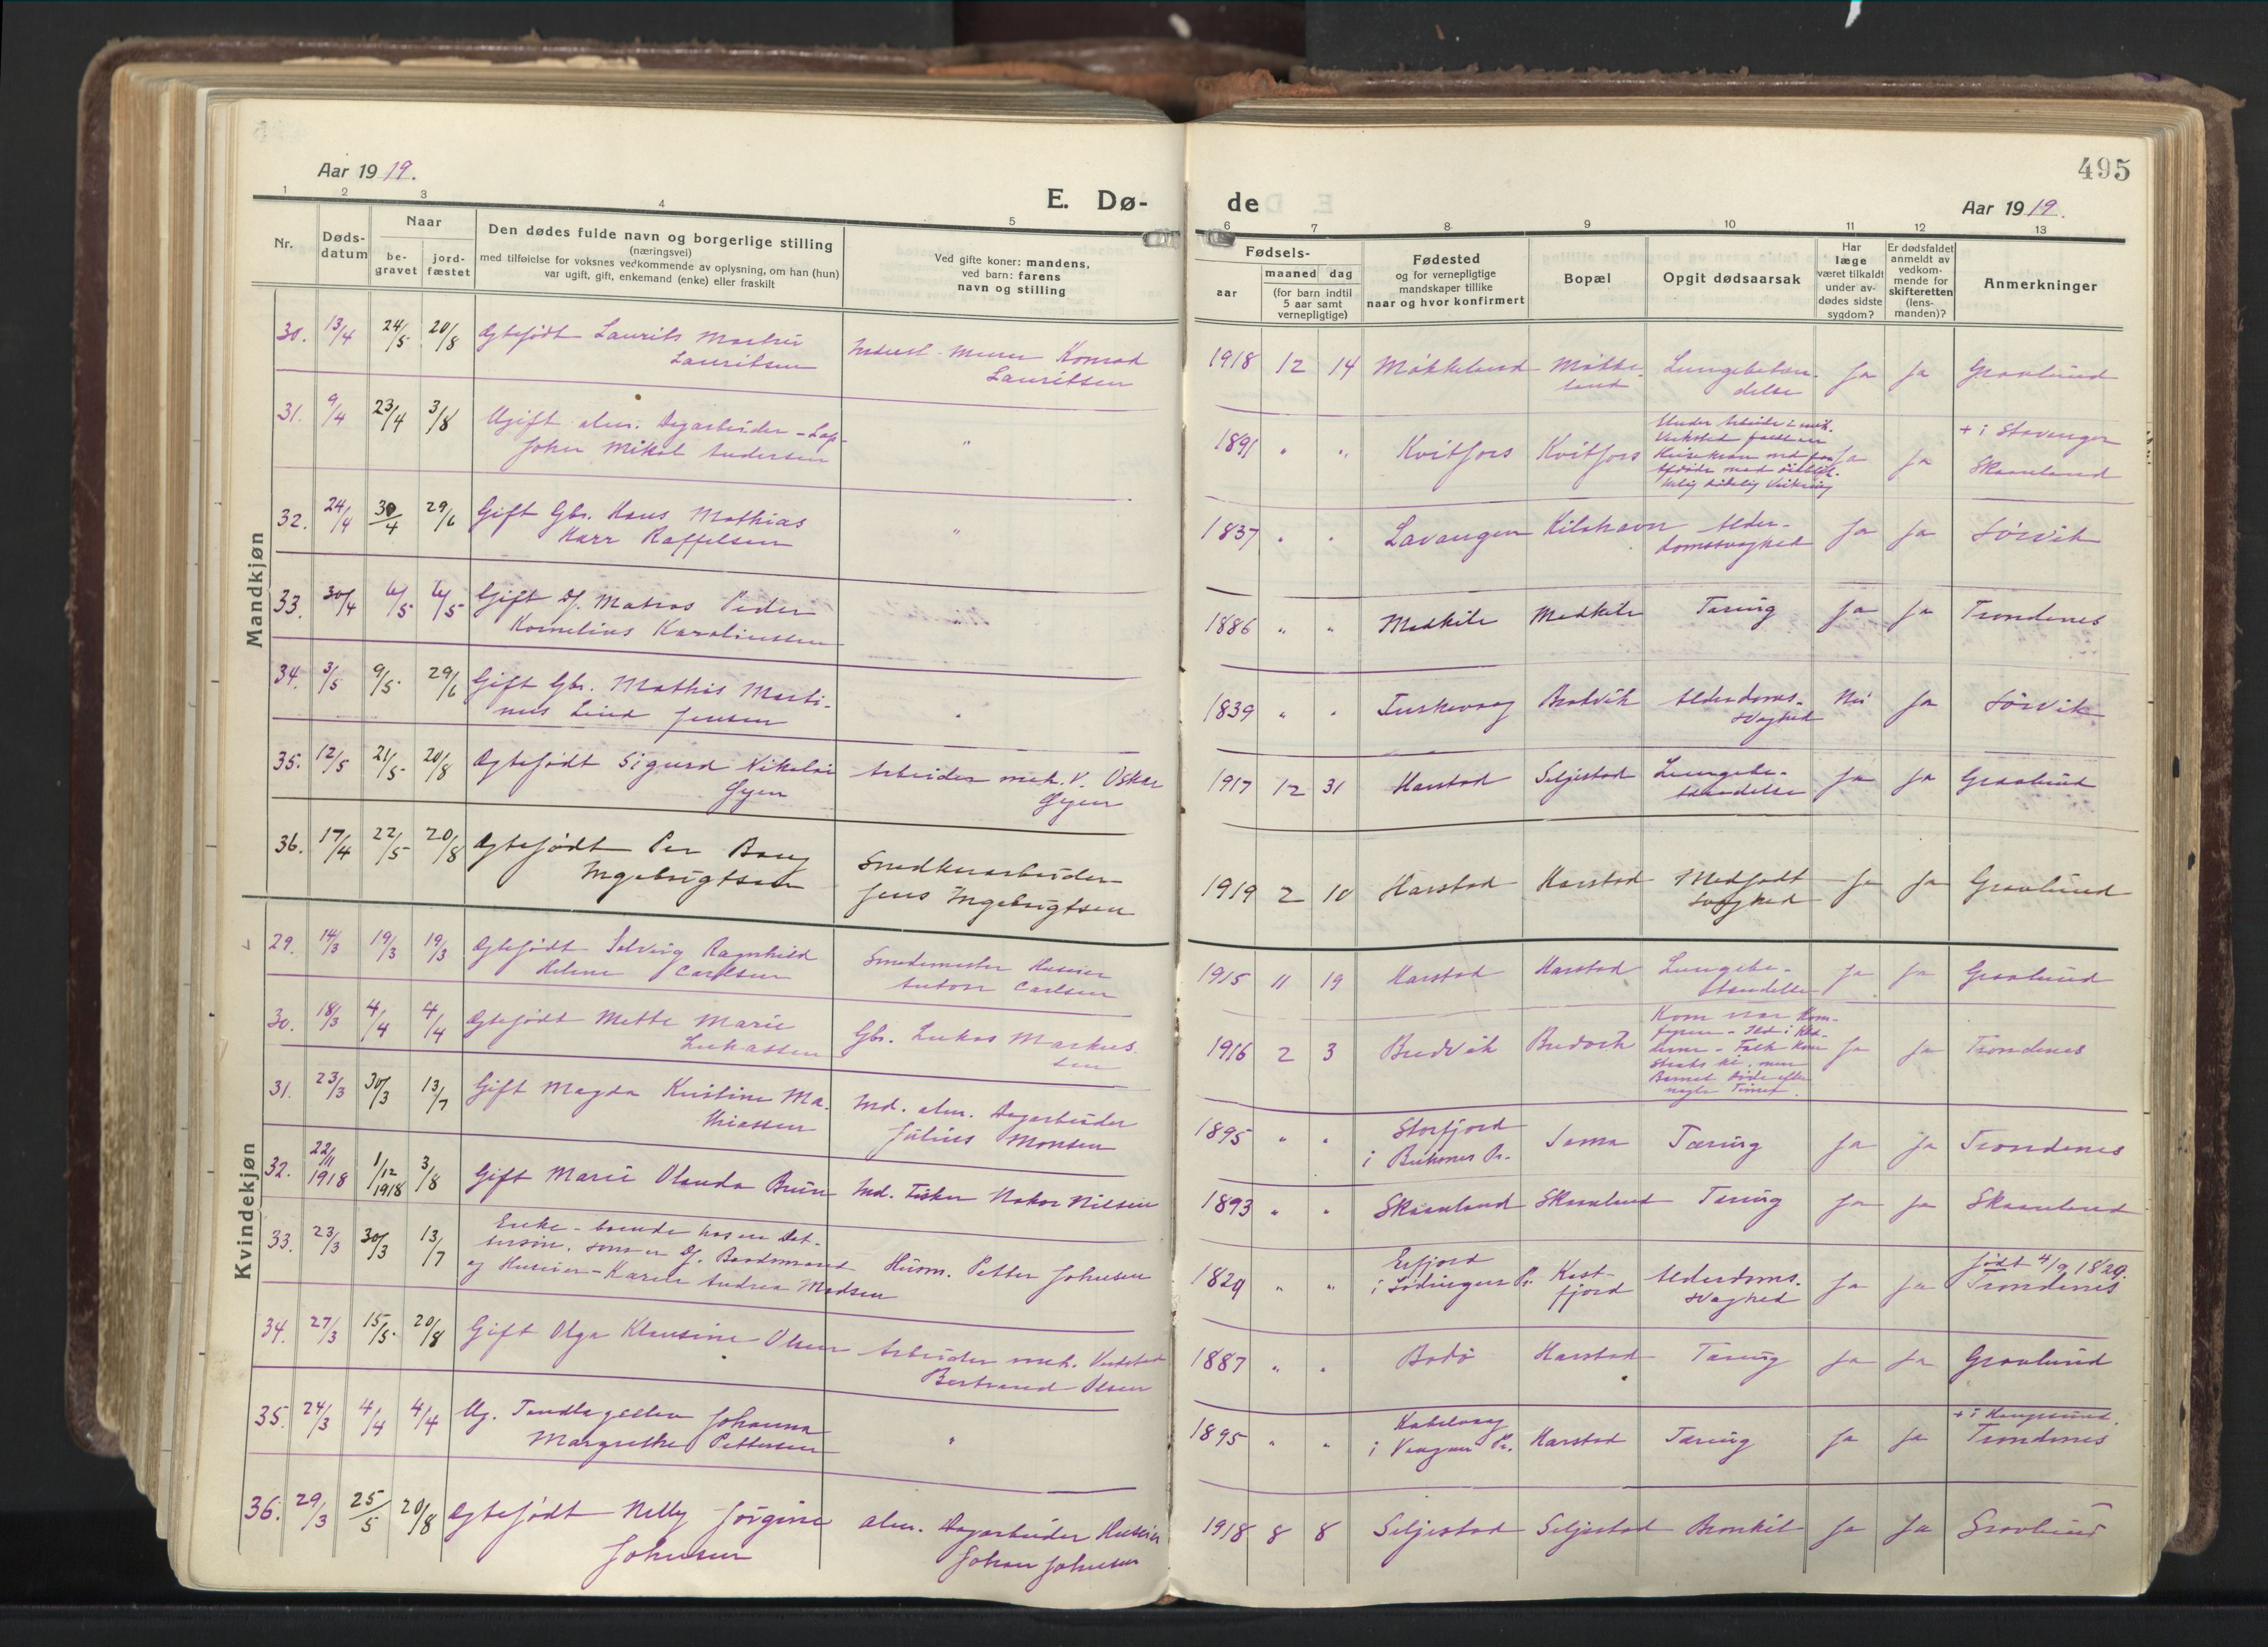 495
Aar 1919.
E. Dø-
de
Aar 1919.
1 2 3 4 5 6 7 8 9 10 11 12 13
Nr.
Døds-
datum
Naar
be-
gravet
jord-
fæstet
Den dødes fulde navn og borgerlige stilling
(næringsvei)
med tilføielse for voksnes vedkommende av oplysning, om han (hun)
var ugift, gift, enkemand (enke) eller fraskilt
Ved gifte koner: mandens,
ved barn: farens
navn og stilling
Fødsels-
aar
maaned dag
(for barn indtil
5 aar samt
vernepligtige)
Fødested
og for vernepligtige
mandskaper tillike
naar og hvor konfirmert
Bopæl
Opgit dødsaarsak
Har
læge
været tilkaldt
under av-
dødes sidste
sygdom?
Er dødsfaldet
anmeldt av
vedkom-
mende for
skifteretten
(lens-
manden)?
Anmerkninger
Mandkjøn
30. 13/4 24/5 20/8 Ægtefødt Laurits Martin
Lauritsen
Murer Konrad
Lauritsen
1918 12 14 Møkkeland Møkke-
land
Lungebetæn-
delse
Ja Ja Gravlund
31. 9/4 23/4 3/8 Ugift alm. Dagarbeider - Lap-
Johan Mikal Andersen
" 1891 " " Kvitfors Kvitfors
Ja Ja + i Stavanger
Skaanland
32. 24/4 30/4 29/6 Gift Gbr. Hans Mathias
Karr Raffelsen
" 1837 " " Lavangen Kilahavn Alder-
domssvaghed
Ja Ja Sørvik
33. 30/4 6/5 6/5 Gift Df. Matros Peder
Kornelius Karoliussen
" 1886 " " Medkila Medkila Tæring Ja Ja Trondenes
34. 3/5 9/5 29/6 Gift Gbr. Mathis Marti-
nus Lind Jensen
" 1839 " " Tuskevaag Brødvik Alderdoms-
svaghed
Nei Ja Sørvik
35. 12/5 21/5 20/8 Ægtefødt Sigurd Nikolai
Gyen
Arbeider mek. V. Oskar
Gyen
1917 12 31 Harstad Seljestad Lungebe-
tændelse
Ja Ja Gravlund
36. 17/4 22/5 20/8 Ægtefødt Per Bang
Ingebrigtsen
Snedkerarbeider
Jens Ingebrigtsen
1919 2 10 Harstad Harstad Medfødt
svaghed
Ja Ja Gravlund
Kvindekjøn
29. 14/3 19/3 19/3 Ægtefødt Solveig Ragnhild
Helene Carlsen
Smedemester Huseier
Anton Carlsen
1915 11 19 Harstad Harstad Lungebe-
tændelse
Ja Ja Gravlund
30. 18/3 4/4 4/4 Ægtefødt Mette Marie
Lukassen
Gbr. Lukas Markus-
sen
1916 2 3 Brudvik Brudvik Kom nær Kom-
fyren - Ild i Klæ-
derne - Folk kom
straks til, men
Barnet døde efter
nogle Timer.
Ja Ja Trondenes
31. 23/3 30/3 13/7 Gift Magda Kristine Ma-
thiassen
Ind. alm. Dagarbeider
Julius Monsen
1895 " " Storfjord
i Pr.
Sama Tæring Ja Ja Trondenes
32. 22/11 1918 1/12 1918 3/8 Gift Marie Olauda Bruun
Ind. Fisker Hakon Nilsen
1893 " " Skaanland Skaanland Tæring Ja Ja Skaanland
33. 23/3 30/3 13/7 Enke - boende hos en Dat-
tersøn, som er Df. Baadsmand
og Huseier - Karen Andrea Madsen
Husm. Petter Johnsen
1829 " " Erfjord
i Lødingen Pr.
Kast-
fjord
Alderdoms-
svaghed
Ja Ja født 4/9 1829.
Trondenes
34. 27/3 15/5 20/8 Gift Olga Klausine Olsen
Arbeider mek. Verksted
Bertrand Olsen
1887 " " Bodø Harstad Tæring Ja Ja Gravlund
35. 24/3 4/4 4/4 Ug. Johanna
Margrethe Pettersen
" 1895 " " Kabelvaag
i Vaagan Pr.
Harstad Tæring Ja Ja + i Haugesund.
Trondenes
36. 29/3 25/5 20/8 Ægtefødt Nelly Jørgine
Johnsen
alm. Dagarbeider Huseier
Johan Johnsen
1918 8 8 Seljestad Seljestad Bronkit Ja Ja Gravlund